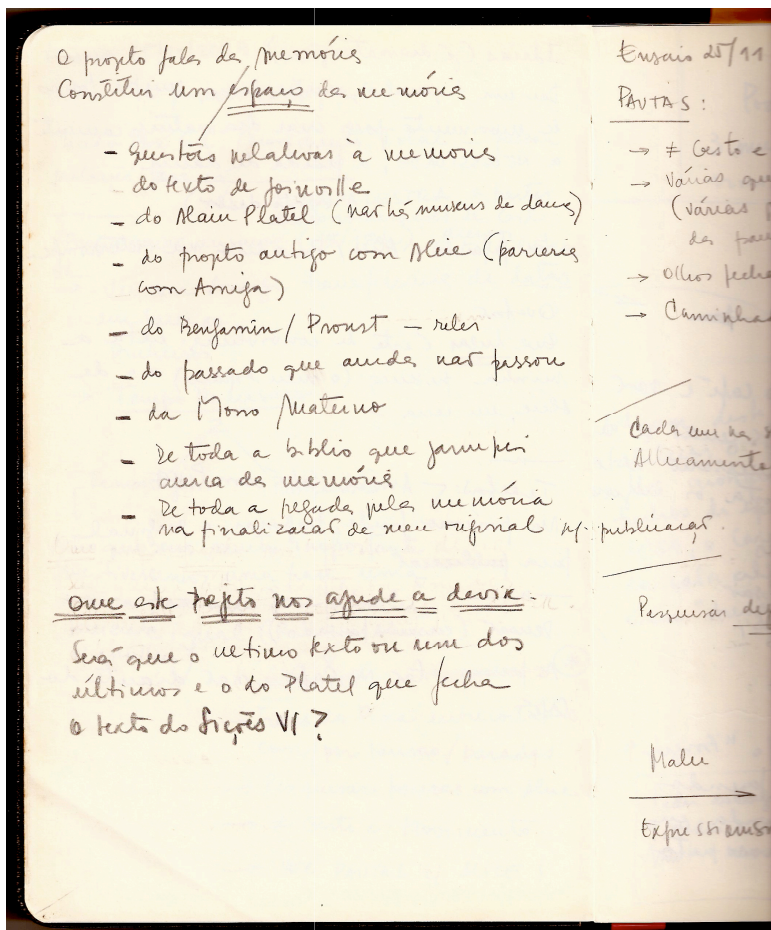 O projeto fala da memória
Constitui um espaço da memória
- Questões relativas à memória
do texto de Joinville
- do Alain Platel (não há museus de dança)
- do projeto antigo com Alice (parceria
com Amiga)
- do Benjamin / Proust – reler
- do passado que ainda não passou
- da Mono Materno
- De toda a biblio que
acerca da memória
- De toda a pegada pela memória
na finalização de meu material p/ publicação.
Que este trajeto nos ajude a devir.
Será que o ultimo texto ou um dos
últimos é o do Platel que fecha
o texto do Sições VI?
Ensaio 25/11
PAUTAS:
→ ≠ Gesto e
→ Várias que
(várias p
das pau
→ Olhos fecha
→ Caminhad
Cada um na s
Pesquisar de
Malu
Expressionis